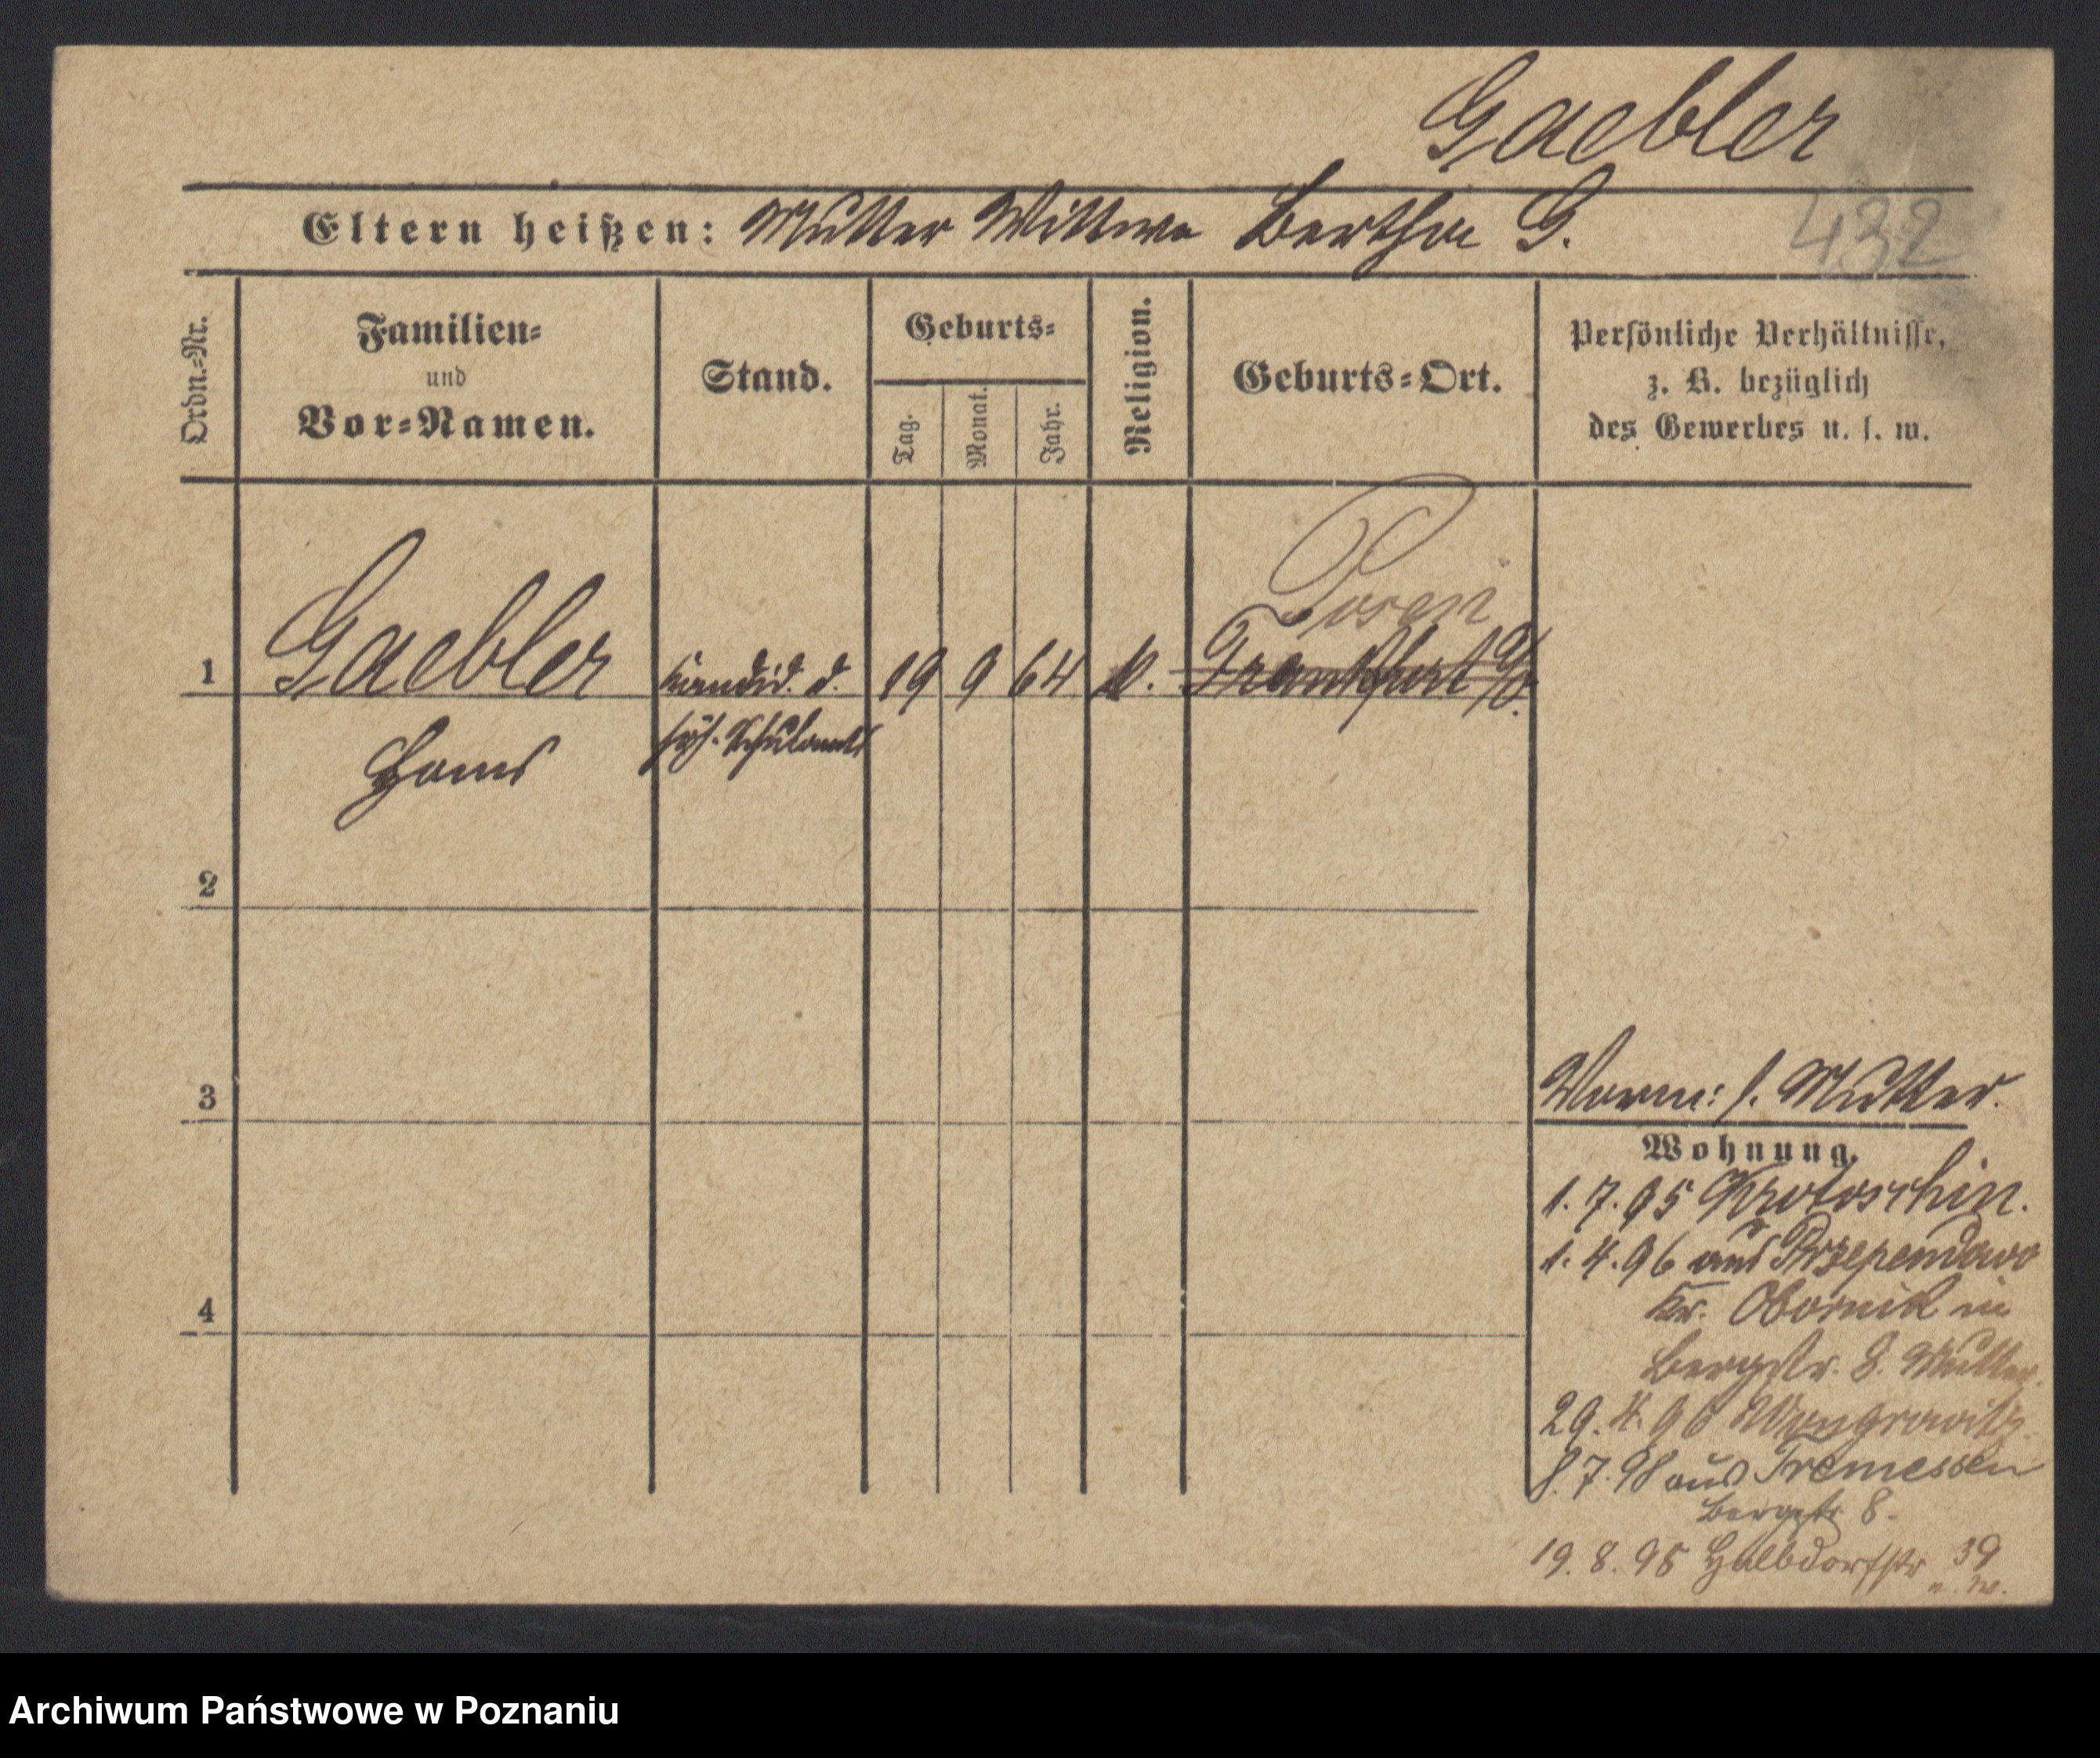 Gaebler
Eltern heißen: Mutter Wittwe Bertha G.
432
Ordn.-Nr.
Familien-
und
Vor-Namen.
Stand.
Geburts-
Tag.
Monat.
Jahr.
Religion.
Geburts-Ort.
Persönliche Verhältnisse,
z. B. bezüglich
des Gewerbes u. s. w.
Posen
1 Gaebler Kandid. d. 19 9 64 Frankfurt a/O.
Hans höh. Schulamts
2
3
Vorm: s. Mutter.
Wohnung.
1. 7. 95 Krotoschin.
1. 4. 96 aus Przependowo
4
Kr. Obornik in
Bergstr. 8. Mutter.
29. 4. 96 Wongrowitz
8. 7. 98 aus Tremessen
Bergstr 8.
19. 8. 98 Halbdorfstr 39
Archiwum Państwowe w Poznaniu